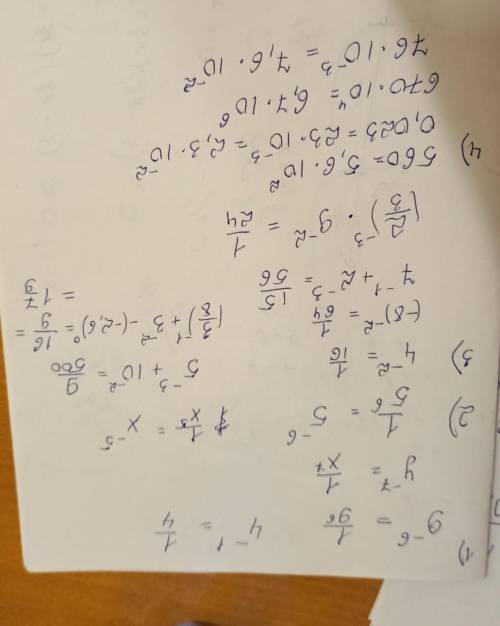 1) 9⁻⁶ = 1/9⁶   4⁻¹ = 1/4
y⁻⁷ = 1/x⁷
2) 1/5⁶ = 5⁻⁶   1/x⁵ = x⁻⁵
3) 4⁻² = 1/16   5⁻³ + 10⁻² = 9/500
(-8)⁻² = 1/64   (3/8)⁻¹ + 3⁻² - (-2,6)⁰ = 16/9 =
7⁻¹ + 2⁻³ = 15/56   = 1 7/9
(2/3)⁻³ · 9⁻² = 1/24
4) 560 = 5,6 · 10²
0,023 = 23 · 10⁻³ = 2,3 · 10⁻²
670 · 10⁴ = 6,7 · 10⁶
76 · 10⁻³ = 7,6 · 10⁻²